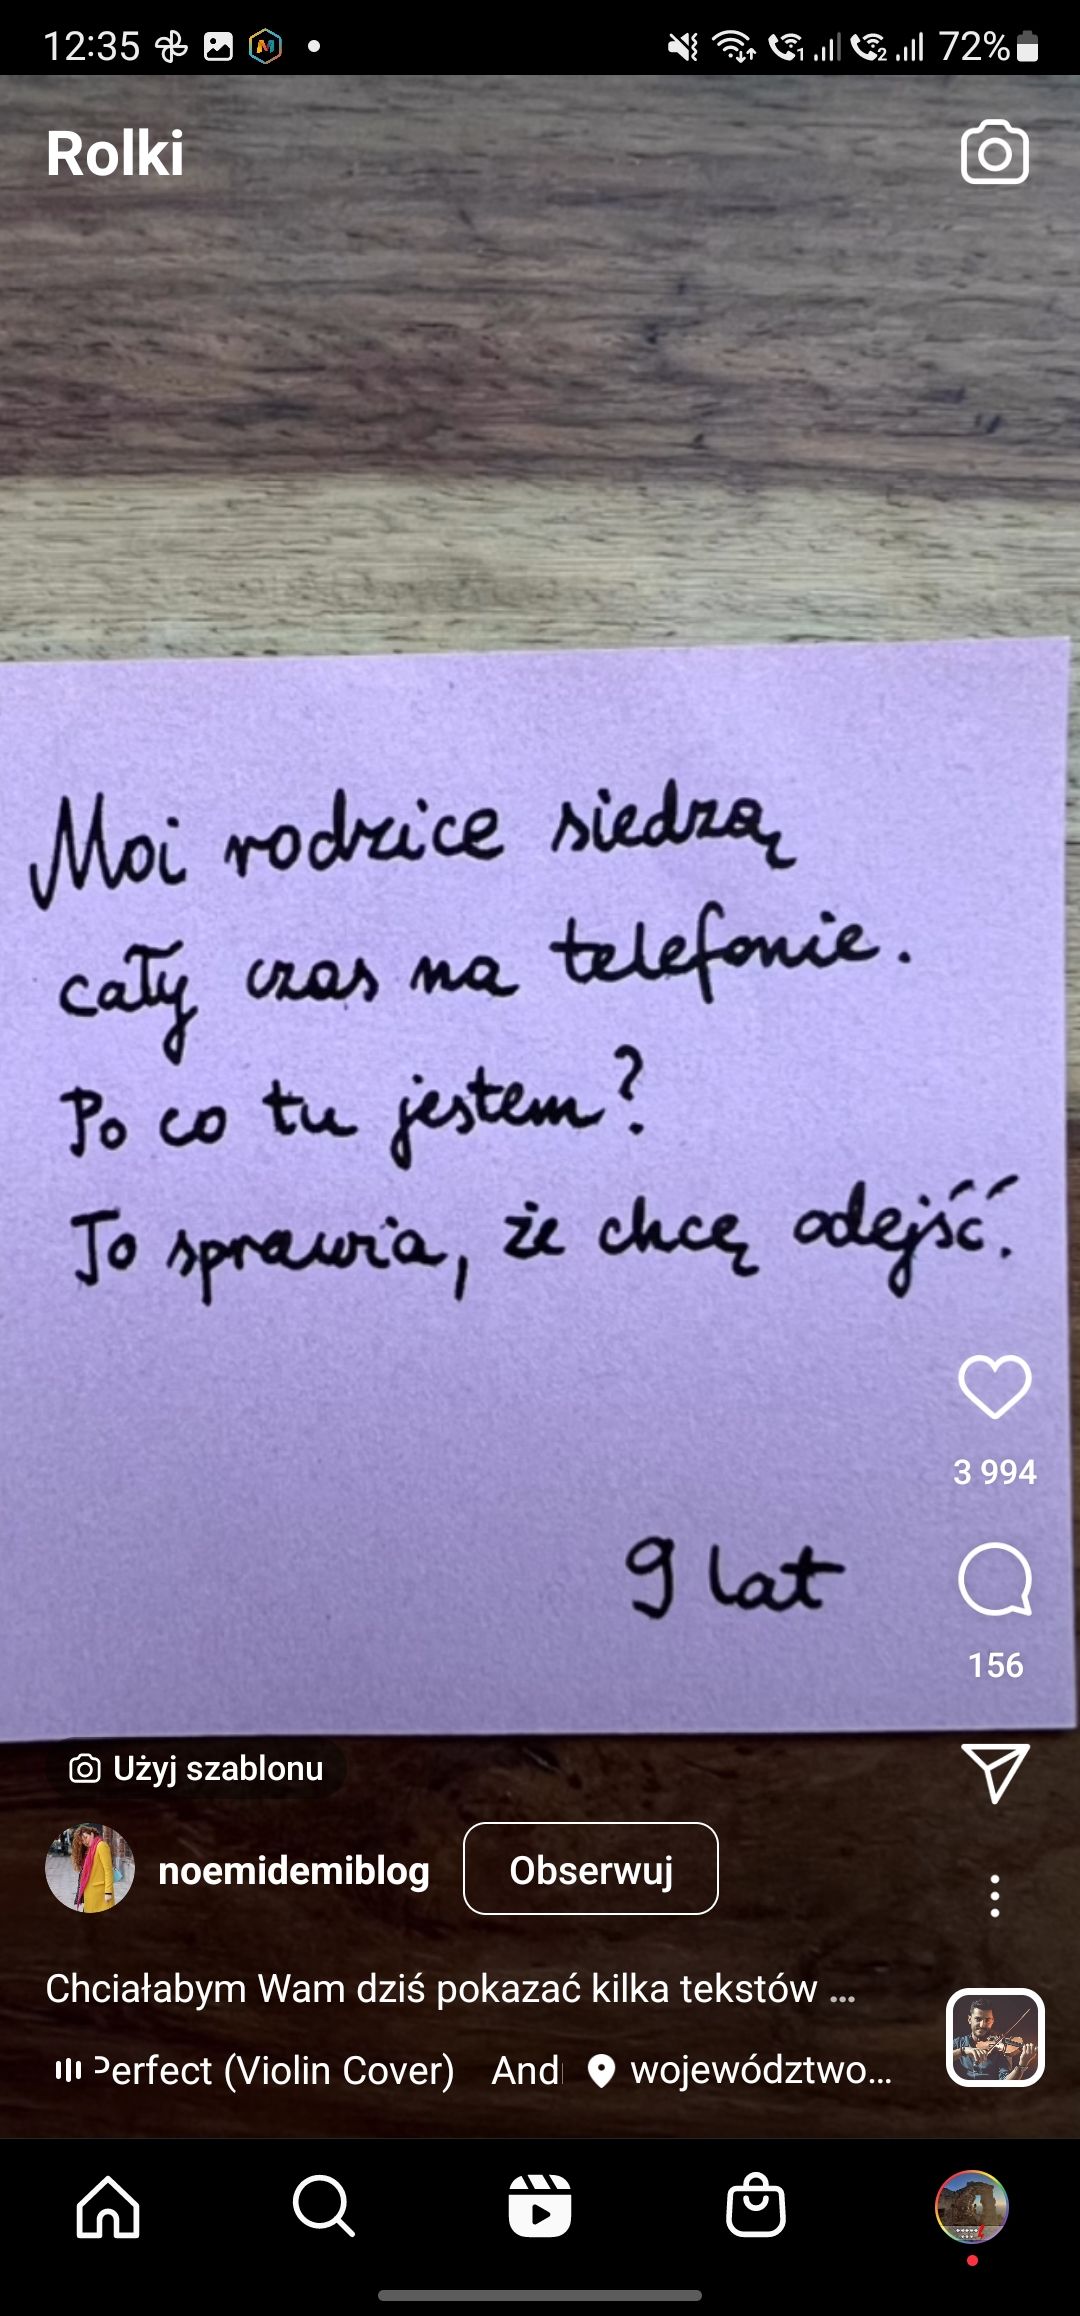 12:35
72%
Rolki
Moi rodzice siedzą
cały czas na telefonie.
Po co tu jestem?
To sprawia, że chcę odejść.
9 lat
3 994
156
Użyj szablonu
noemidemiblog
Obserwuj
Chciałabym Wam dziś pokazać kilka tekstów ...
Perfect (Violin Cover) And
województwo...